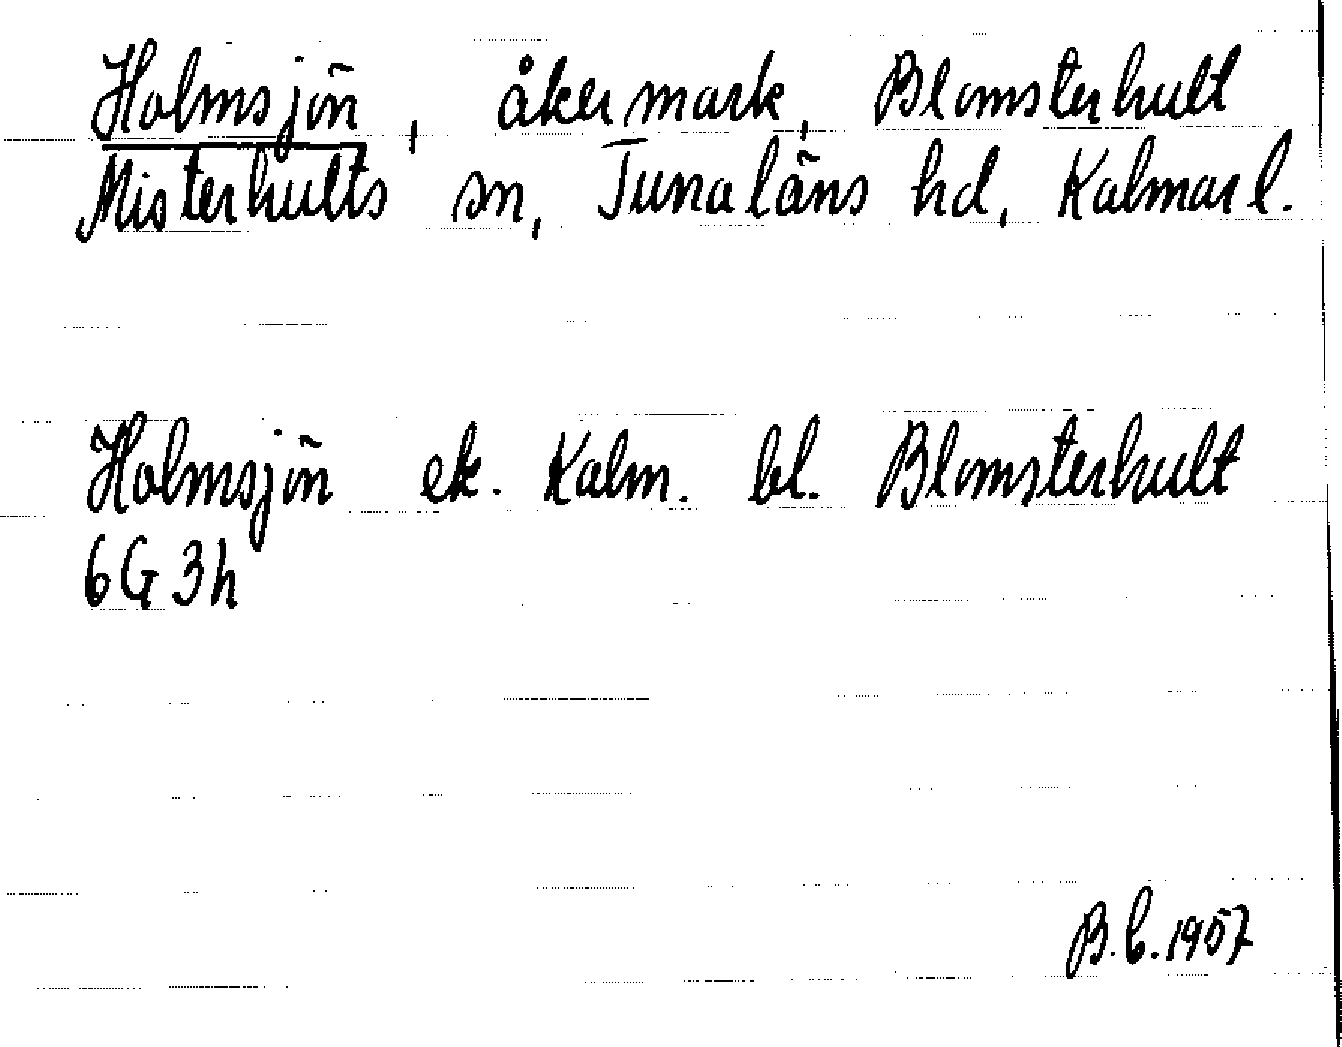 Holmsjön, åkermark, Blomsterhult
Misterhults sn, Tunaläns hd, Kalmar l.
Holmsjön ek. Kalm. bl. Blomsterhult
6G3h
B.b. 1957